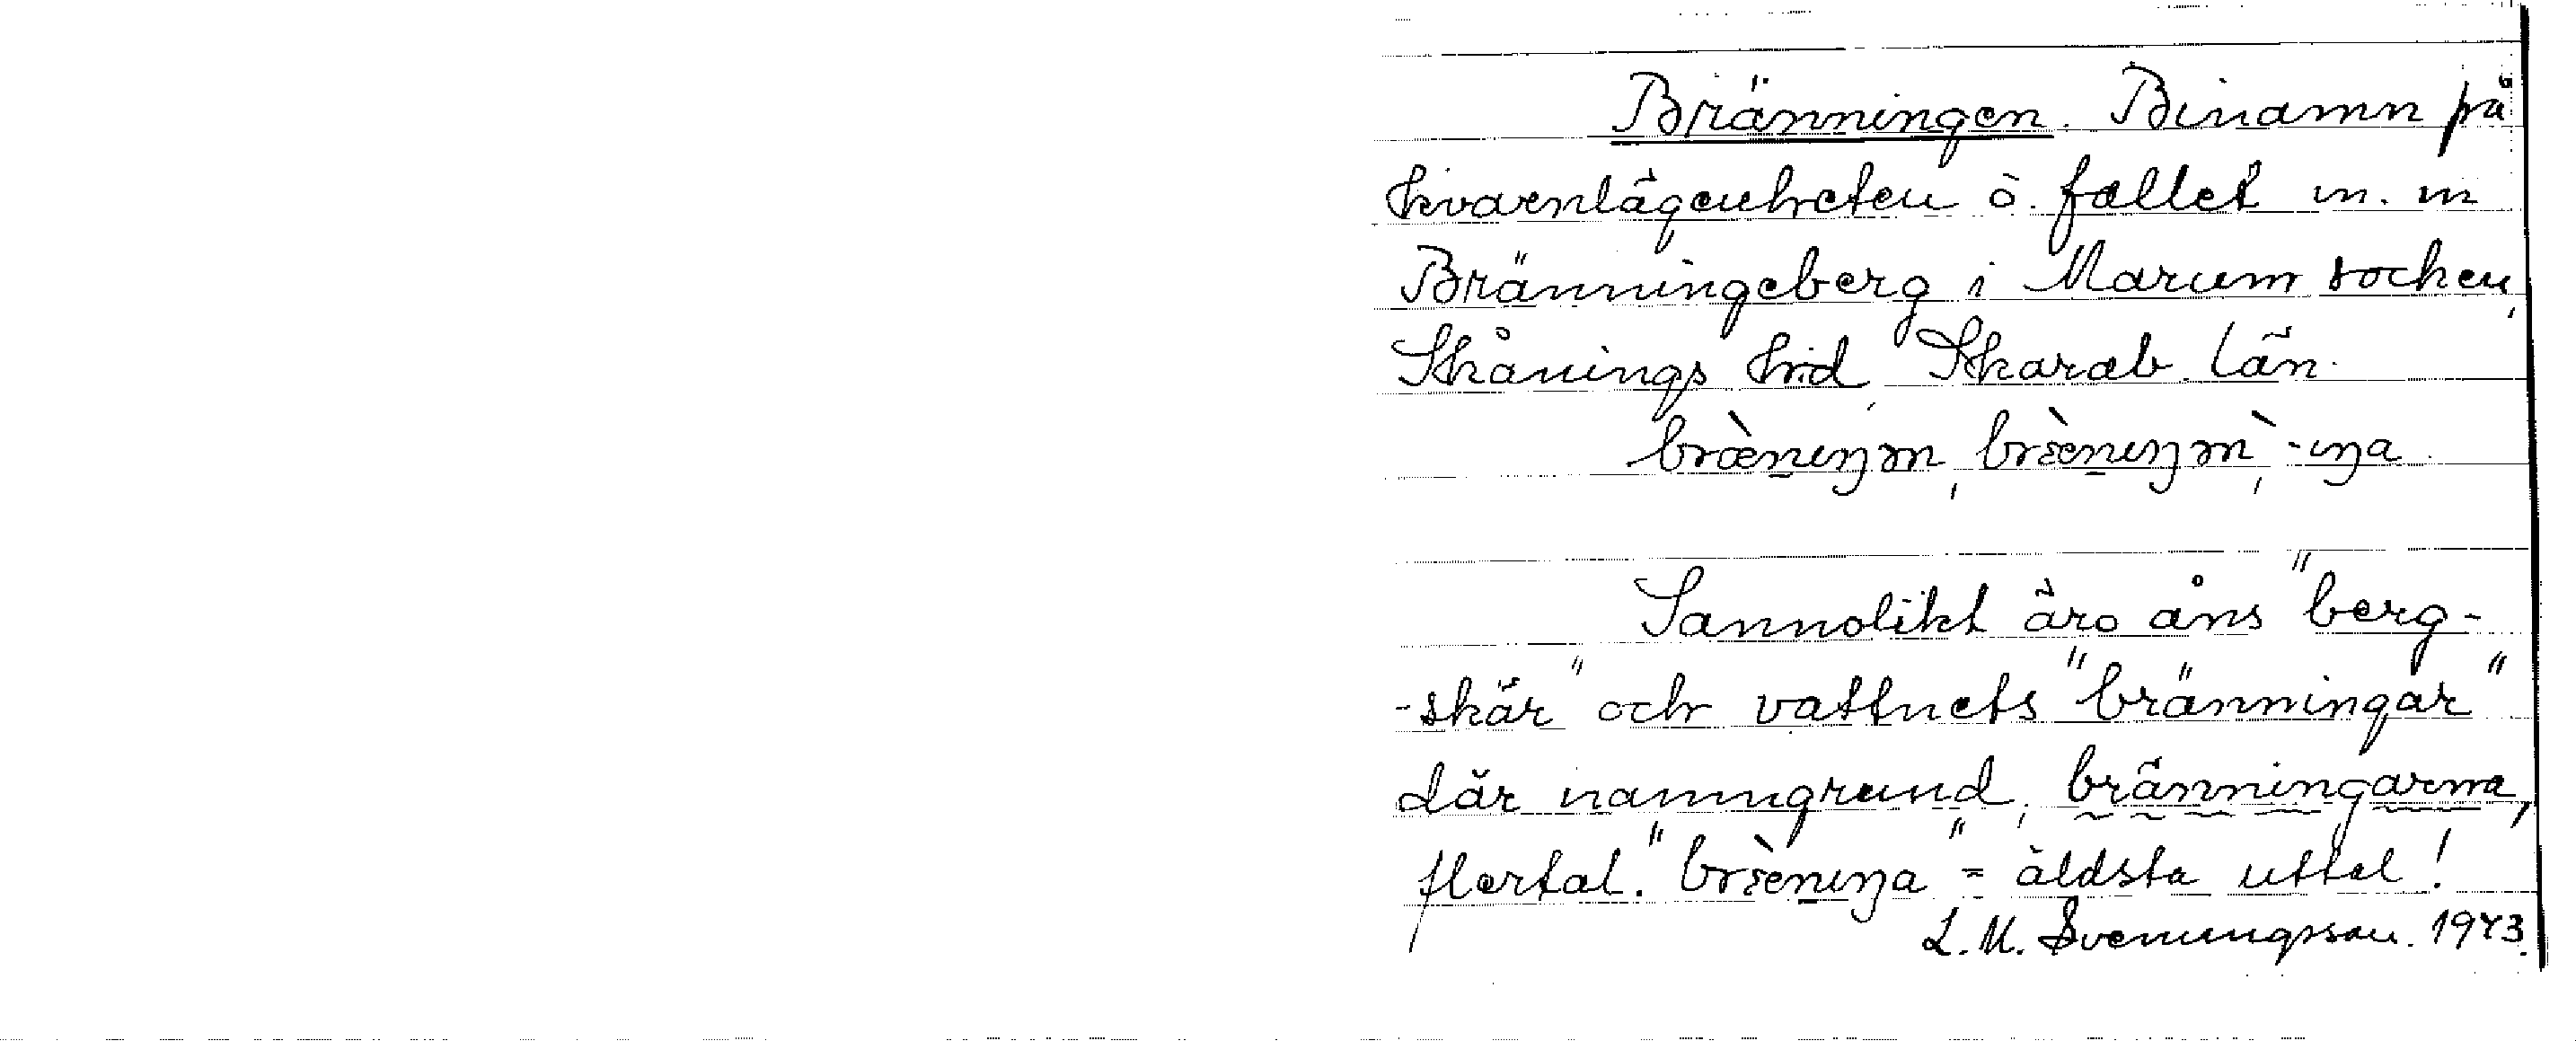 Bränningen. Binamn på
kvarnlägenheten o. fallet m. m
Bränningeberg i Marum socken,
Skånings hd, Skarab. län.
bræ̀niŋən, bræ̀niŋən, -iŋa
Sannolikt äro åns "berg-
-skär" och vattnets "bränningar"
där namngrund, bränningarna,
flertal. "bræ̀niŋa" = äldsta uttal!
L. M. Svenungsson. 1943.